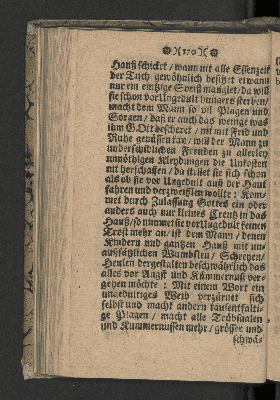 Hauß schicket / wann nit alle Essenzeit
der Tisch gewöhnlich besitzet etwann
nur ein eintzige Speiß manglet / da will
sie schon vor Ungedult hungers sterben /
macht dem Mann so vil Plagen und
Sorgen / daß er auch das wenige was
ihm GOtt bescheret / mit mit Frid und
Ruhe genüssen kan / will der Mann zu
underschidlichen Freuden zu allerley
unnöthigen Kleydungen die Unkosten
nit herschaffen / da stellet sie sich schon
als ob sie vor Ungedult auß der Haut
fahren und verzweiflen wollte : Kom-
met durch Zulassung Gottes ein oder
anders auch nur kleines Creutz in das
Hauß / so nimmet sie vor Ungedult keinen
Trost mehr an / ist dem Mann / denen
Kindern und gantzen Hauß mit un-
außsprechlichen / Schreyen /
Heulen dergestalten beschwährlich das
alles vor Angst und Kümmernuß ver-
gehen möchte : Mit einem Wort ein
ungedultiges Weib verzürnet sich
selbst und macht andern tausentfälti-
ge Plagen / macht alle Trübsaalen
und Kummernussen mehr / grösser und
schwä-